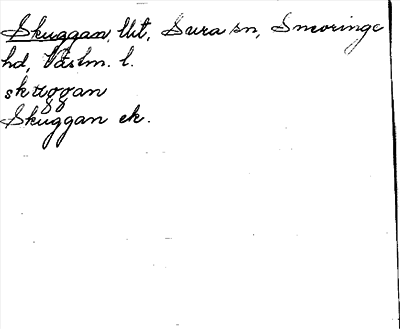 Skuggan, lht, Sura sn, Snevringe
hd, Västm. l.
skuggan
Skuggan ek.